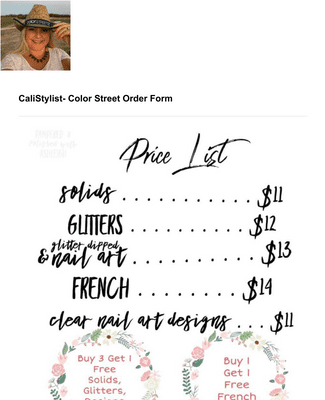 CaliStylist- Color Street Order Form
Price List
solids . . . . . . . . . . . . $11
GLITTERS . . . . . . . . . . $12
glitter dipped
& nail art . . . . . . . . . . $13
FRENCH . . . . . . . . $14
clear nail art designs . . . $11
Buy 3 Get 1
Free
Solids,
Glitters,
Buy 1
Get 1
Free
French